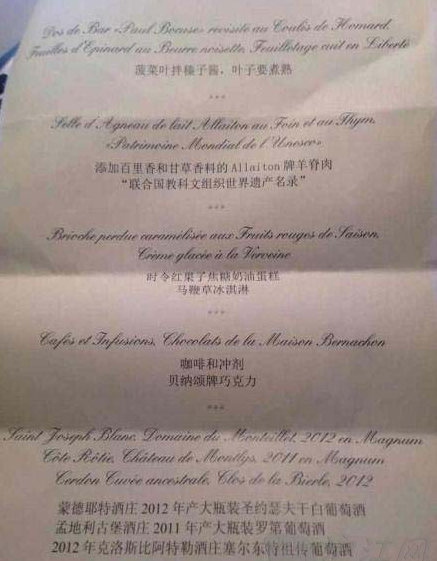 Dos de Bar «Paul Bocuse» revisité au Coulis de Homard,
Feuilles d'Epinard au Beurre noisette, Feuilletage cuit en Liberté
菠菜叶拌榛子酱，叶子要煮熟
***
Selle d'Agneau de lait Allaiton au Foin et au Thym,
«Patrimoine Mondial de l'Unesco»
添加百里香和甘草香料的Allaiton 牌羊脊肉
“联合国教科文组织世界遗产名录”
***
Brioche perdue caramélisée aux Fruits rouges de Saison,
Crème glacée à la Verveine
时令红果子焦糖奶油蛋糕
马鞭草冰淇淋
***
Cafés et Infusions, Chocolats de la Maison Bernachon
咖啡和冲剂
贝纳颂牌巧克力
***
Saint Joseph Blanc, Domaine du Monteillet, 2012 en Magnum
Côte Rôtie, Château de Montlys, 2011 en Magnum
Cerdon Cuvée ancestrale, Clos de la Bierle, 2012
蒙德耶特酒庄 2012 年产大瓶装圣约瑟夫干白葡萄酒
孟地利古堡酒庄 2011 年产大瓶装罗第葡萄酒
2012 年克洛斯比阿特勒酒庄塞尔东特祖传葡萄酒